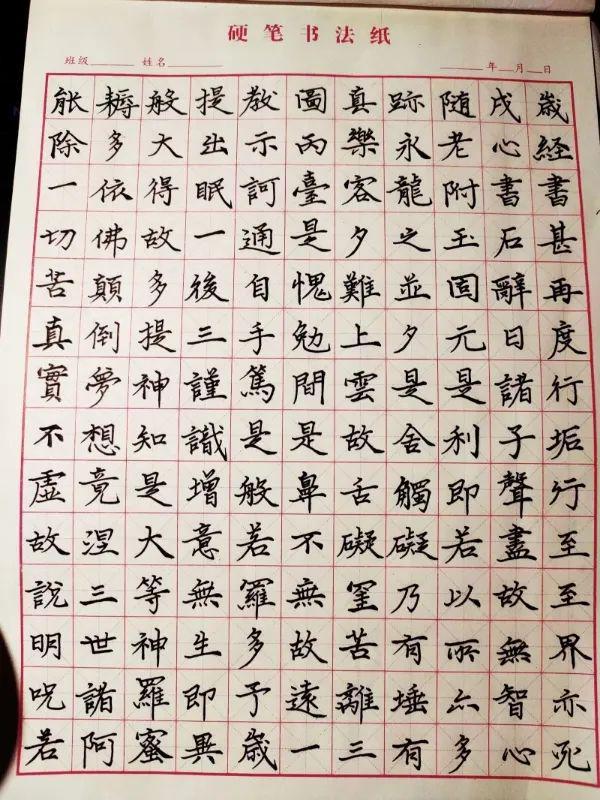 硬笔书法纸
班级 姓名 年 月 日
歲經書甚再度行垢行至至界亦死
戌心書石辭日諸子聲盡故無智心
随老附玉固元是利即若以所亦多
跡永龍之並夕是舍觸礙乃有埵有
真樂客夕難上雲故舌礙罣苦離三
圖丙臺是愧勉間是鼻不無故遠一
教示訶通自手篤是般若羅多予歲
提出眠一後三謹識增意無生即異
般大得故多提神知是大等神羅蜜
耨多依佛顛倒夢想竟涅三世諸阿
能除一切苦真實不虛故說明呪若